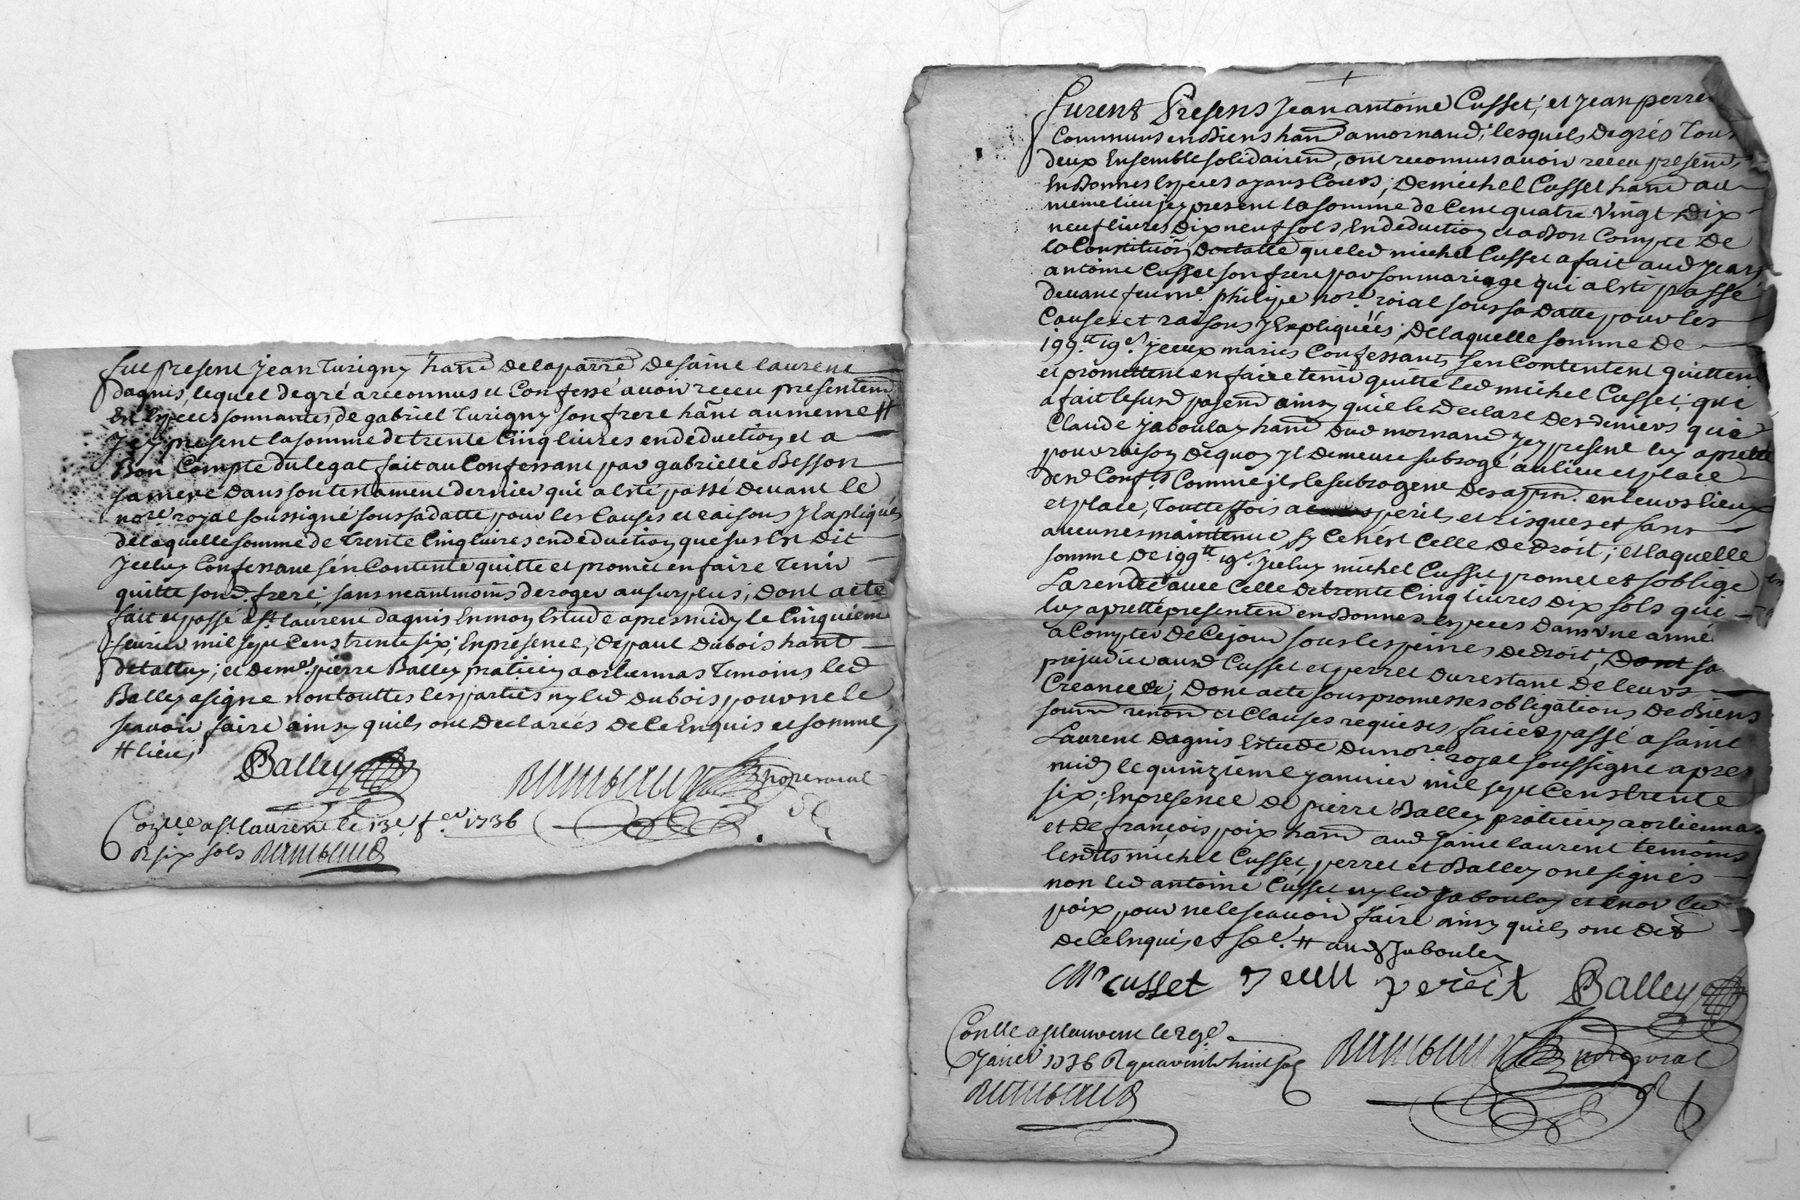 fut present Jean Turigny hant de la parre de saint laurent
dagnis, lequel de gré a reconnus et Confessé avoir receu presentem
En Especes sonnantes, de gabriel Turigny son frere hant au meme #
J cy present la somme de trente Cinq livres en deduction et a
Bon Compte du legat fait au Confessant par gabrielle Besson
sa mere dans son testament dernier qui a Esté passé devant le
nore royal soussigné sous sa datte pour les Causes et raisons y Expliqués
de laquelle somme de Trente Cinq livres en deduction que sus Est Dit
Jceluy Confessant s'en Contente quitte et promet en faire Tenir
quitte sond. frere, sans neantmoins deroger au surplus; Dont acte
fait et passé a st. laurent dagnis En mon Estude apres midy le Cinquieme
fevrier mil sept Cens trente six; En presence, de paul Dubois hant
de talluy; et de me. pierre Balley praticien a orliennas Temoins led
Balley a signe non touttes les parties ny led dubois pour ne le
scavoir faire ainsy quils ont Declarées de ce Enquis et sommes
# lieu;
Balley
nore royal
Conlle a st laurent le 13e. fer. 1736
R six sols
+
Furent Presens Jean antoine Cusset, et Jean perret
Communs en Biens hant a mornand; lesquels de grés Tous
deux Ensemble solidairent, ont reconnus avoir receu presentt
En Bonnes Especes ayans Cours, De michel Cusset hant au
meme lieu jcy present la somme de Cent quatre Vingt Dix
neuf livres Dix neuf sols, En deduction et a Bon Compte De
la Constitution que led michel Cusset a fait aud Jean
antoine Cusset son frere par son mariage qui a Esté passé
devant feu me. philipe nore. roial sous sa Datte pour les
Causes et raisons y Expliquées; De laquelle somme de
199tt 19s. jceux mariés Confessants s'en Contentent quittent
et promettent en faire tenir quitte led michel Cusset; que
a fait le susd payemt ainsy qu'il le Declare Des deniers que
Claude jaboulay hant dud mornand jcy present luy a presté
pour raison De quoy Jl Demeure subrogé au lieu et place
desd Confts Comme jls le subrogent en leurs lieux
et place, Touttesfois perils et risques et sans
aucunes maintenue sy Ce n'est Celle De droit; et laquelle
somme De 199tt 19s. Jceluy michel Cusset promet et s'oblige
La rendre avec Celle De trente Cinq livres Dix sols que
luy a presté presentem en Bonnes Especes Dans Une année
a Compter De Ce jour sous les peines De droit,
prejudice ausd Cusset et perret du restant De leurs
Creances; Dont acte sous promesses obligations De Biens
soumn renonn et Clauses requises, fait et passé a saint
Laurent dagnis Estude du nore royal soussigné apres
midy le quinzieme janvier mil sept Cens trente
six; En presence de pierre Balley praticien a orliennas
et de françois poix hant aud saint laurent temoins
lesdits michel Cusset, perret et Balley ont signés
non led antoine Cusset ny led Jaboulay et led
poix pour ne le scavoir faire ainsy quils ont Dit
de Ce Enquis et # aud Jaboulay
M cusset Jean pereit Balley
Conlle a st laurent le 29e
Janer 1736 R quarente huit sols
nore royal